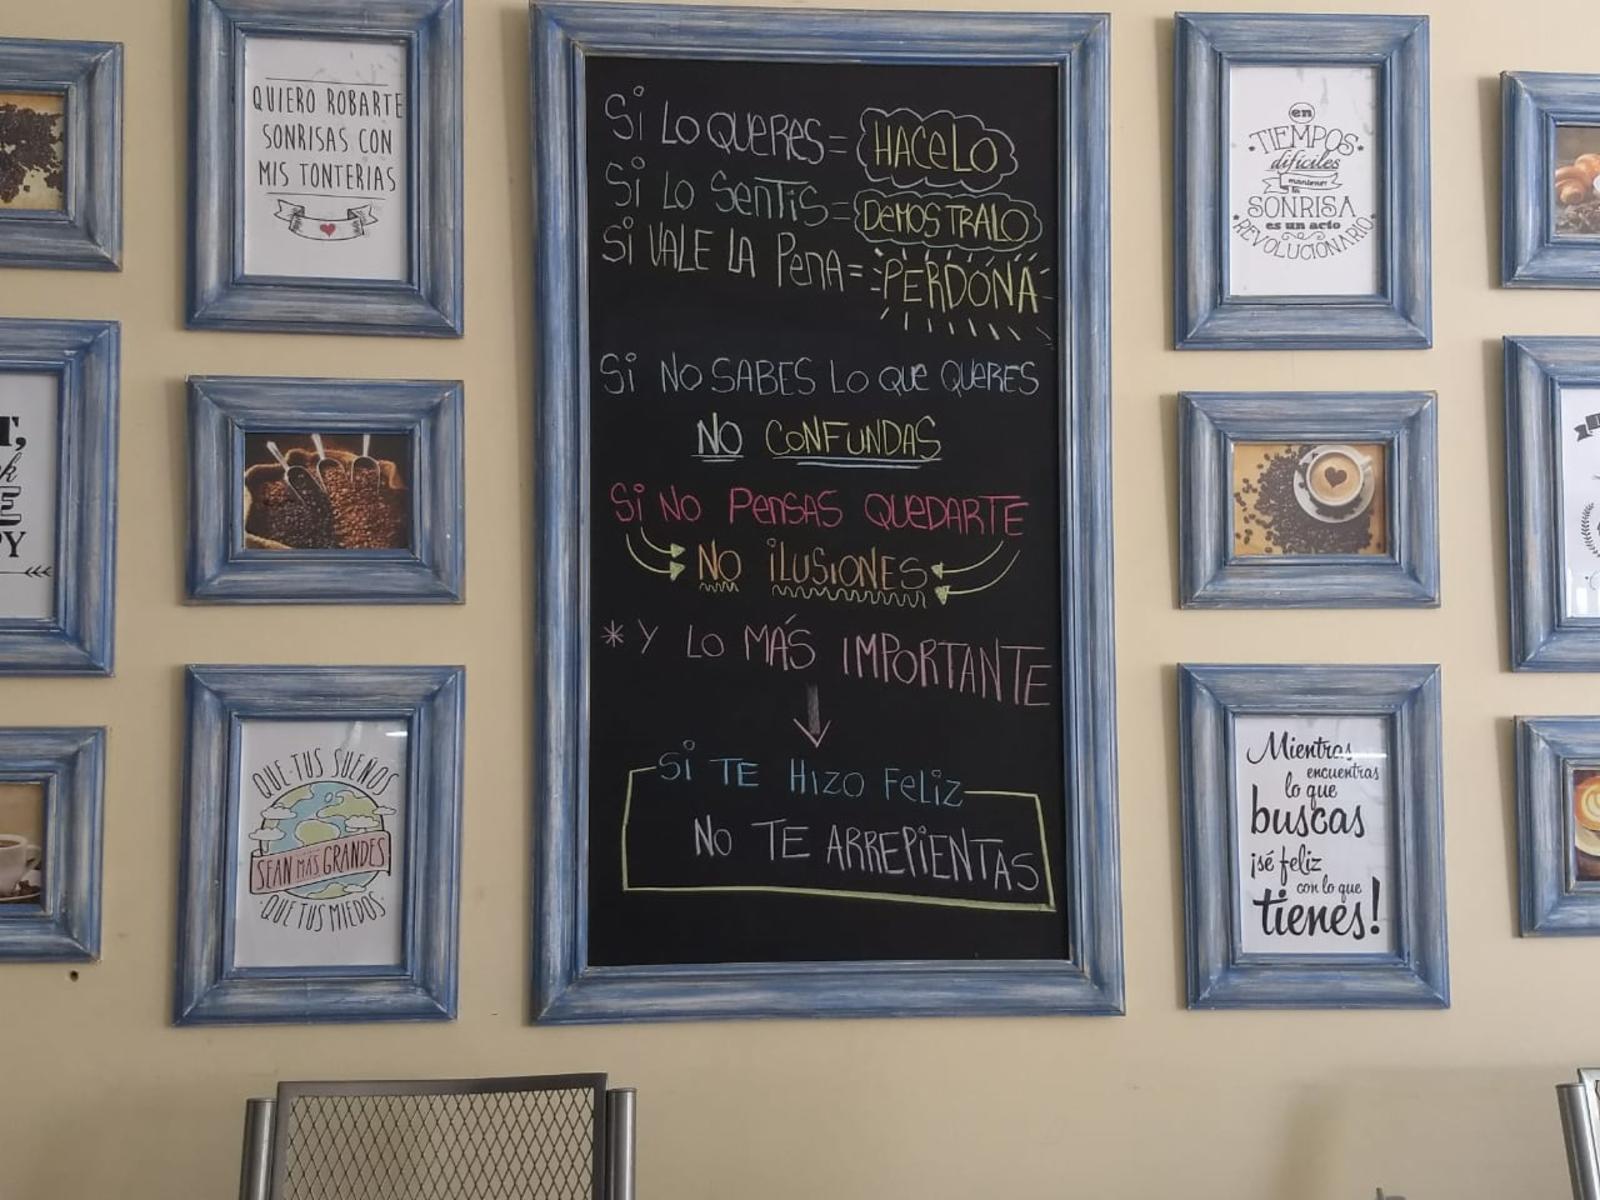 QUIERO ROBARTE
SONRISAS CON
MIS TONTERIAS
QUE TUS SUEÑOS
SEAN MÁS GRANDES
QUE TUS MIEDOS
Si LO QUERES = HACELO
Si LO SENTIS = DEMOSTRALO
Si VALE LA PENA = PERDONÁ
Si NO SABES LO QUE QUERES
NO CONFUNDAS
Si NO PENSAS QUEDARTE
NO iLUSiONES
* Y LO MÁS IMPORTANTE
Si TE HIZO FELIZ
NO TE ARREPIENTAS
en
TIEMPOS
difíciles
mantener
la
SONRISA
es un acto
REVOLUCIONARIO
Mientras
encuentras
lo que
buscas
¡sé feliz
con lo que
tienes!